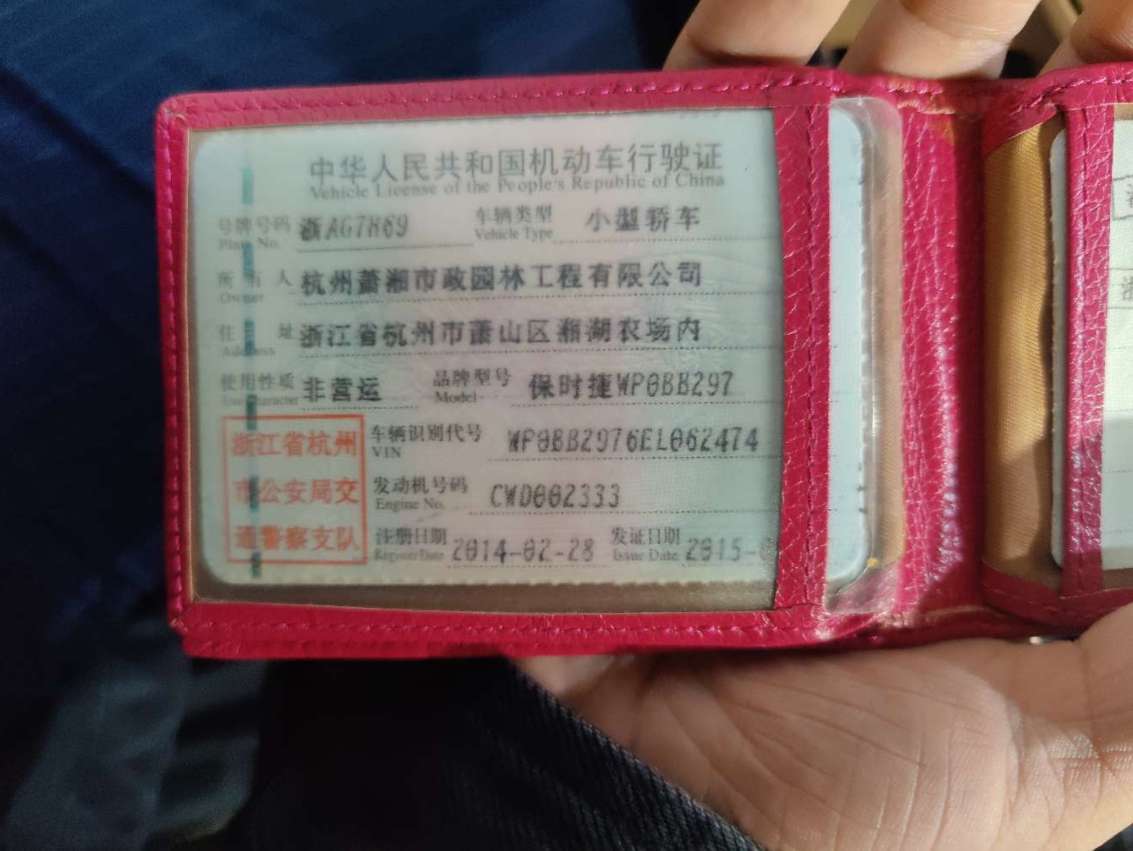 中华人民共和国机动车行驶证
Vehicle License of the People's Republic of China
号牌号码 浙AG7H69 车辆类型 小型轿车
Plate No. Vehicle Type
所有人 杭州萧湘市政园林工程有限公司
Owner
住址 浙江省杭州市萧山区湘湖农场内
Address
使用性质 非营运 品牌型号 保时捷WP0BB297
Use Character Model
浙江省杭州 车辆识别代号 WP0BB2976EL062474
VIN
市公安局交 发动机号码 CWD002333
Engine No.
通警察支队 注册日期 2014-02-28 发证日期 2015-0
Register Date Issue Date